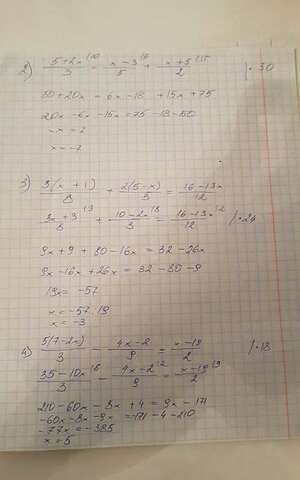 2) (5+2x)/3 |10 - (x-3)/5 |6 + (x+5)/2 |15 |·30
50+20x = 6x-18 + 15x + 75
20x - 6x - 15x = 75 - 18 - 50
-x = 7
x = -7
3) 3(x+1)/8 + 2(5-x)/3 = (16-13x)/12
(3x+3)/8 |3 + (10-2x)/3 |8 = (16-13x)/12 |2 /·24
9x + 9 + 80 - 16x = 32 - 26x
9x - 16x + 26x = 32 - 80 - 9
19x = -57
x = -57:19
x = -3
4) 5(7-2x)/3 - (4x-2)/9 = (x-19)/2 /·18
(35-10x)/3 |6 - (4x-2)/9 |2 = (x-19)/2 |9
210 - 60x - 8x + 4 = 9x - 171
-60x - 8x - 9x = -171 - 4 - 210
-77x = -385
x = 5